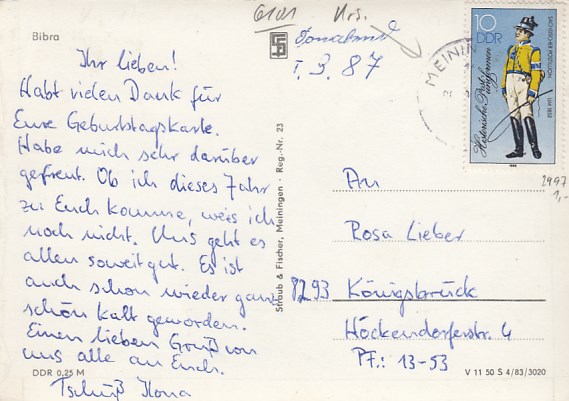 Bibra
6101 Hrs.
Sonnabend
1.3.87
Ihr lieben!
Habt vielen Dank für
Eure Geburtstagskarte.
Habe mich sehr darüber
gefreut. Ob ich dieses Jahr
zu Euch komme, weis ich
noch nicht. Uns geht es
allen soweit gut. Es ist
auch schon wieder ganz
schön kalt geworden.
Einen lieben Gruß von
uns alle an Euch.
Tschüß Ilona
DDR 0,25 M
Straub & Fischer, Meiningen · Reg.-Nr. 23
MEININ
10
DDR
Historische Postuniformen
SÄCHSISCHER POSTILLION
UM 1850
1986
2997
1,-
An
Rosa Lieber
8293 Königsbrück
Höckendorferstr. 4
PF.: 13-53
V 11 50 S 4/83/3020